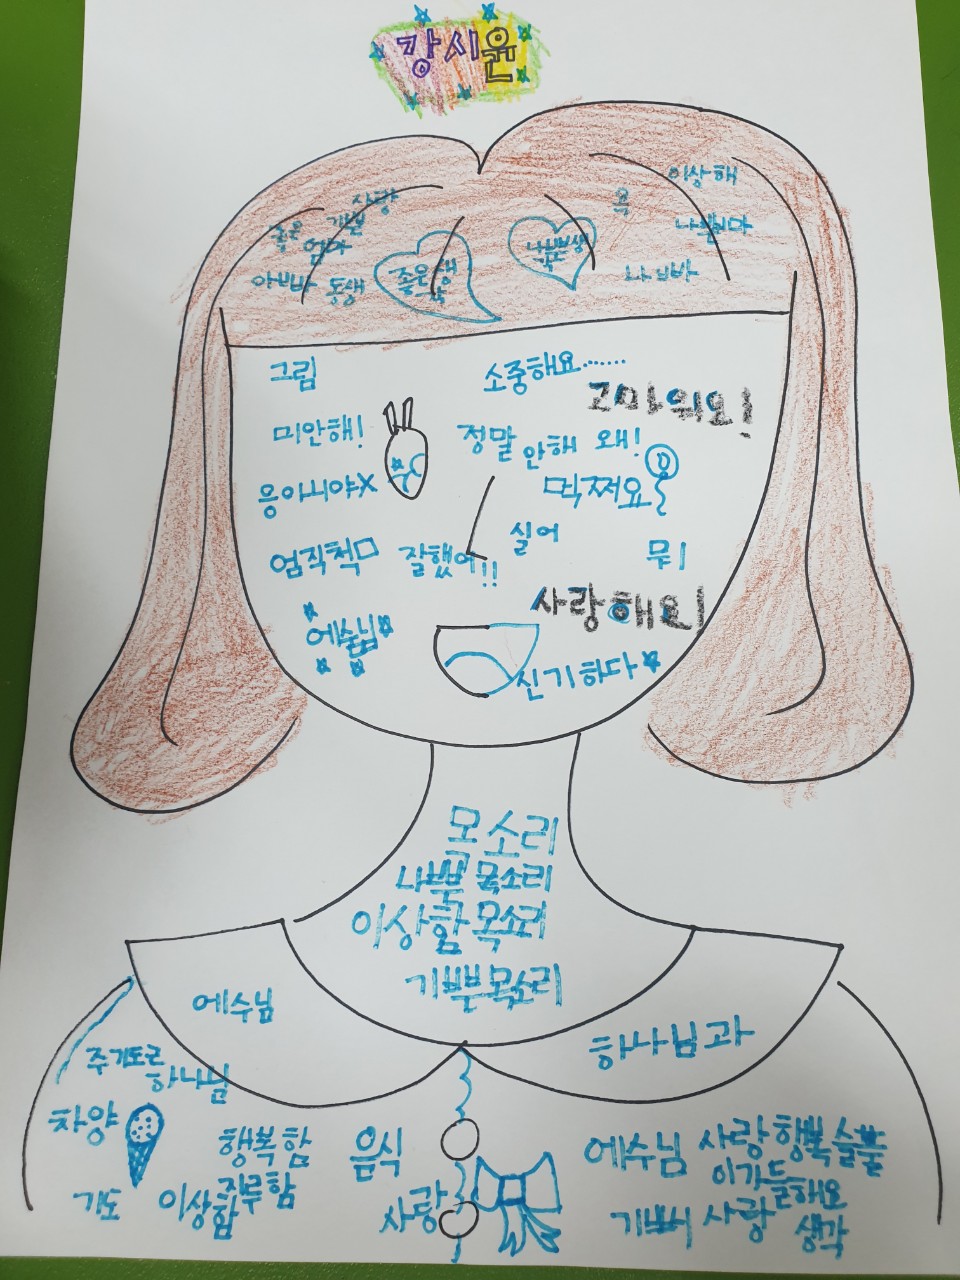 강시윤
사랑
기쁨
좋은
엄마
아빠 동생
좋은 생각
나쁜 생각
욕
이상해
나쁜 마
나 바
그림
소중해요.......
고마워요!
미안해!
정말 안해 왜!
응아니야X
먹쩌요
싫어
엄직척
잘했어!!
뮈
사랑해요!
예술님
신기하다
목소리
나쁜 목소리
이상함 목소리
기쁜 목소리
예수님
하나님과
주기도문
하나님
차양
행복함
음식
예수님 사랑 행복 슬픔
이 가득해요
기도
이상함
지루함
사랑
기쁘 사랑 생각